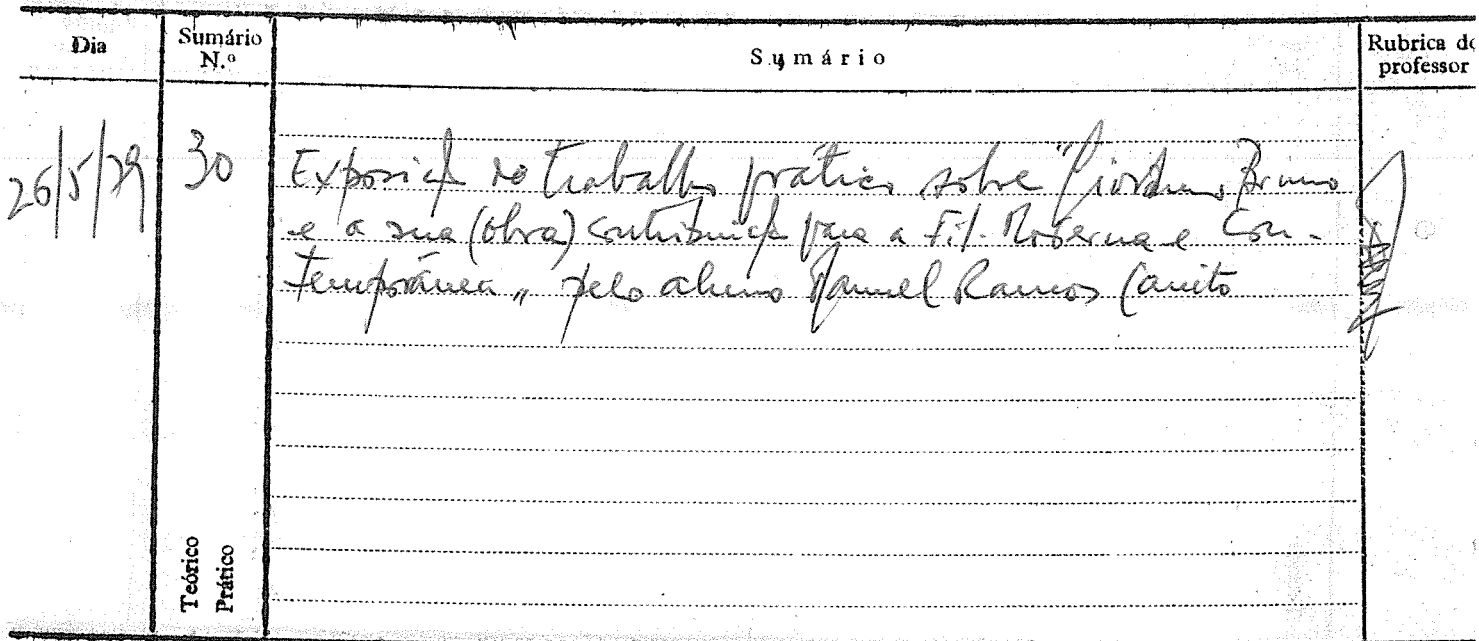 Dia
Sumário N.º
Sumário
Rubrica do professor
26/5/79
30
Exposição do trabalho prático sobre "Giordano Bruno
e a sua (obra) contribuição para a Fil. Moderna e Con-
temporânea" pelo aluno Manuel Ramos
Teórico
Prático